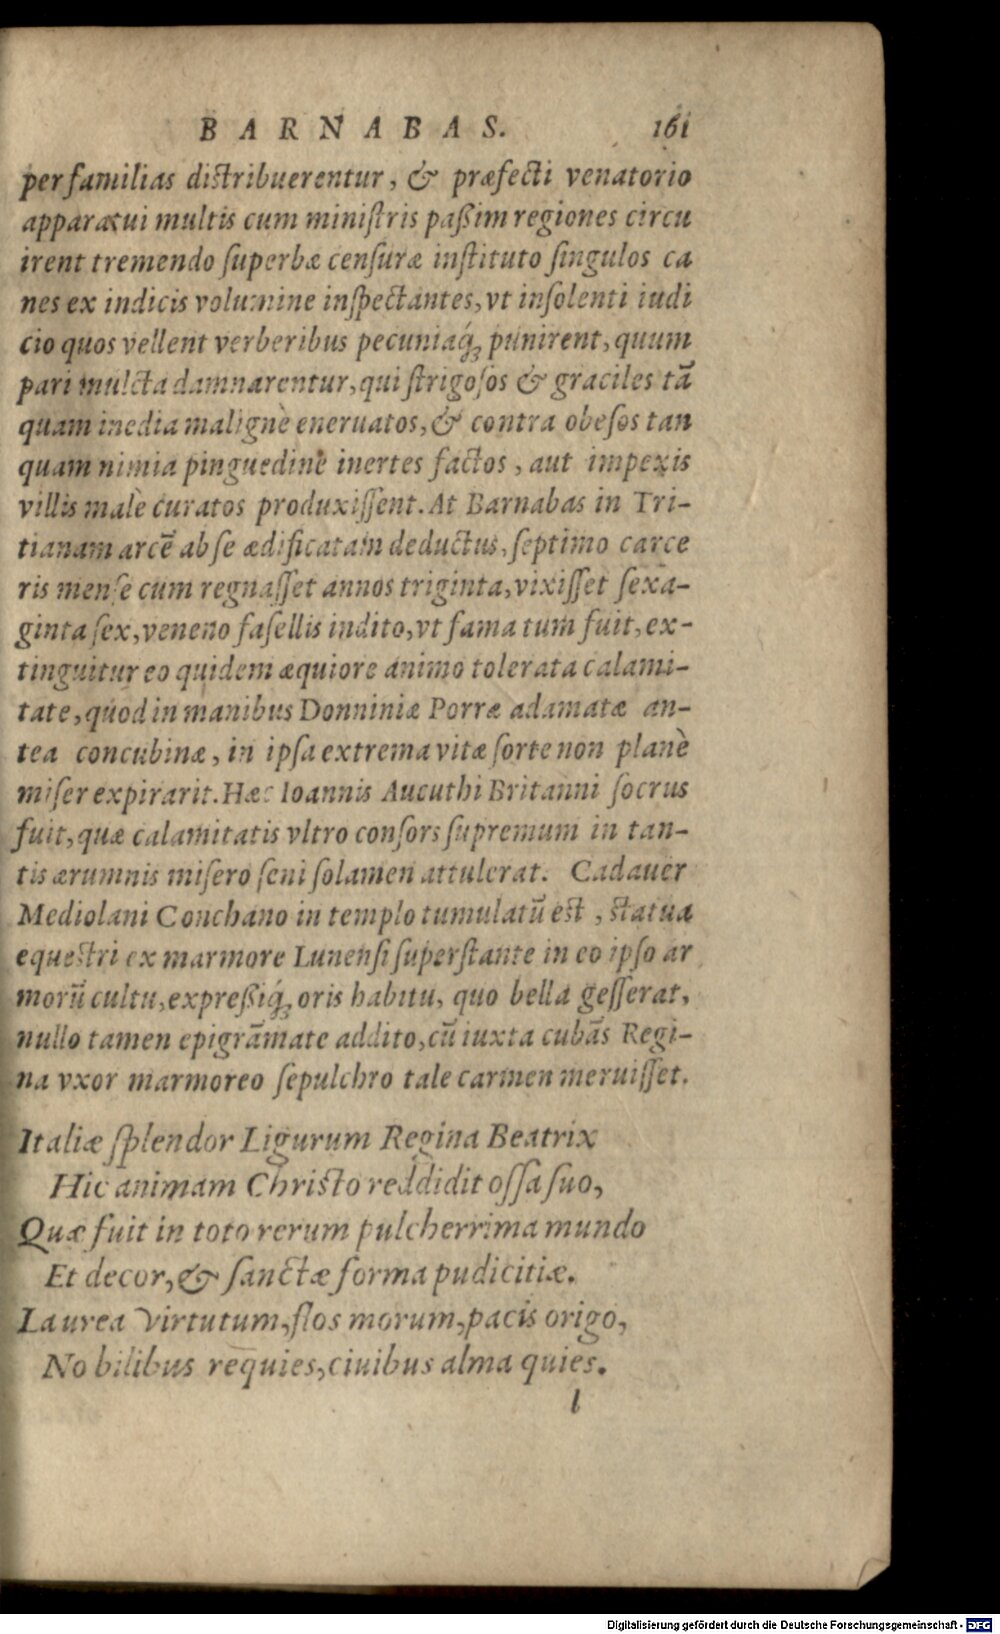 BARNABAS. 161
per familias distribuerentur, & præfecti venatorio
apparatui multis cum ministris paßim regiones circu
irent tremendo superbæ censuræ instituto singulos ca
nes ex indicis volumine inspectantes, vt insolenti iudi
cio quos vellent verberibus pecuniaq́; punirent, quum
pari mulcta damnarentur, qui strigosos & graciles tā
quam inedia malignè eneruatos, & contra obesos tan
quam nimia pinguedine inertes factos, aut impexis
villis male curatos produxissent. At Barnabas in Tri-
tianam arcē ab se ædificatam deductus, septimo carce
ris mense cum regnasset annos triginta, vixisset sexa-
ginta sex, veneno fasellis indito, vt fama tum fuit, ex-
tinguitur eo quidem æquiore animo tolerata calami-
tate, quod in manibus Donniniæ Porræ adamatæ an-
tea concubinæ, in ipsa extrema vitæ sorte non planè
miser expirarit. Hæc Ioannis Aucuthi Britanni socrus
fuit, quæ calamitatis vltro consors supremum in tan-
tis ærumnis misero seni solamen attulerat. Cadauer
Mediolani Conchano in templo tumulatū est, statua
equestri ex marmore Lunensi superstante in eo ipso ar
morū cultu, expreßiq́; oris habitu, quo bella gesserat,
nullo tamen epigrāmate addito, cū iuxta cubās Regi-
na vxor marmoreo sepulchro tale carmen meruisset.
Italiæ splendor Ligurum Regina Beatrix
Hic animam Christo reddidit ossa suo,
Quæ fuit in toto rerum pulcherrima mundo
Et decor, & sanctæ forma pudicitiæ.
Laurea virtutum, flos morum, pacis origo,
No bilibus requies, ciuibus alma quies.
l
Digitalisierung gefördert durch die Deutsche Forschungsgemeinschaft - DFG